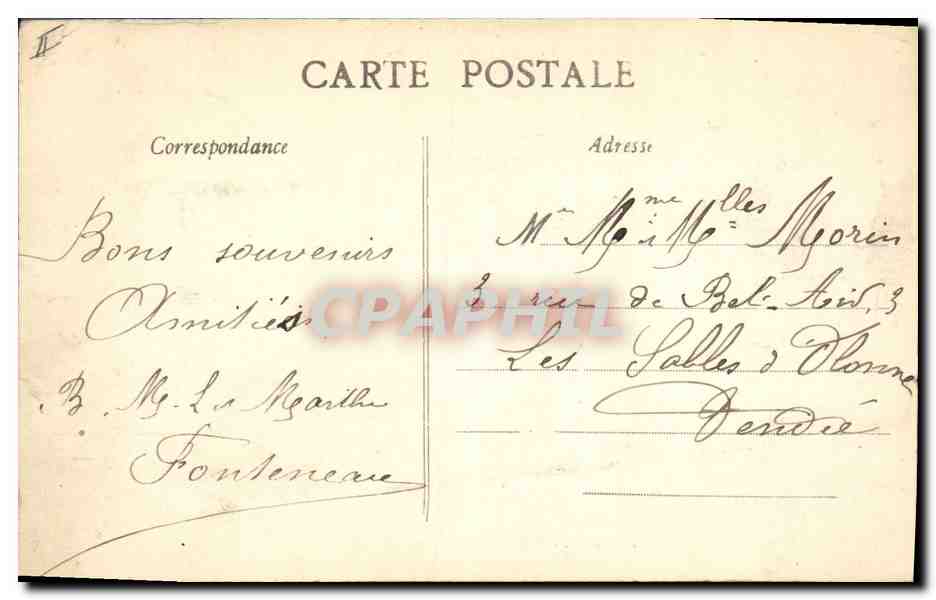 II
CARTE POSTALE
Correspondance
Adresse
Bons souvenirs
Amitiés
B. M. L. & Marthe
Fonteneau
Mr Mme & Mlles Morin
3 rue de Bel-Air, 3
Les Sables d'Olonne
Vendée
CPAPHIL